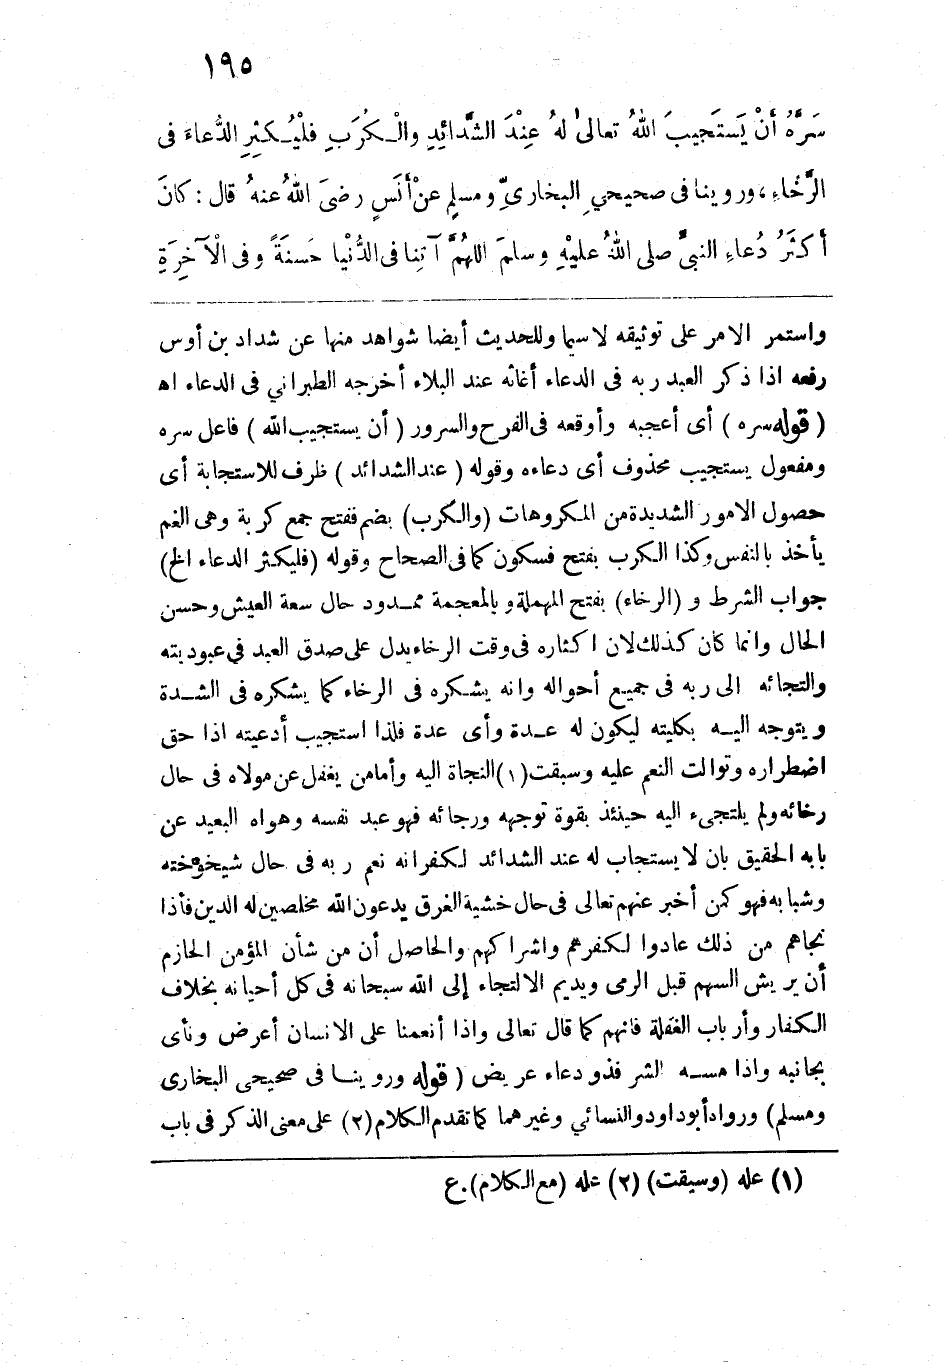 ١٩٥
سَرَّهُ أَنْ يَسْتَجِيبَ اللهُ تعالىٰ لهُ عِنْدَ الشَّدائِدِ والْكُرَبِ فلْيُكثِرِ الدُّعاءَ فى
الرَّخاءِ، وروينا فى صحيحي البخارىِّ ومسلمٍ عنْ أنَسٍ رضىَ اللهُ عنهُ قال : كانَ
أكثَرُ دُعاءِ النبيِّ صلى اللهُ عليْهِ وسلمَ اللهُمَّ آتِنا فى الدُّنْيا حَسنةً وفى الْآخِرَةِ
واستمر الامر على توثيقه لاسيما وللحديث أيضا شواهد منها عن شداد بن أوس
رفعه اذا ذكر العبد ربه فى الدعاء أغاثه عند البلاء أخرجه الطبراني فى الدعاء اه
( قوله سره ) أى أعجبه وأوقعه فى الفرح والسرور ( أن يستجيب الله ) فاعل سره
ومفعول يستجيب محذوف أى دعاءه وقوله ( عند الشدائد ) ظرف للاستجابة أى
حصول الامور الشديدة من المكروهات (والكرب) بضم ففتح جمع كربة وهى الغم
يأخذ بالنفس وكذا الكرب بفتح فسكون كما فى الصحاح وقوله (فليكثر الدعاء الخ)
جواب الشرط و (الرخاء) بفتح المهملة وبالمعجمة ممدود حال سعة العيش وحسن
الحال وانما كان كذلك لان اكثاره فى وقت الرخاء يدل على صدق العبد فى عبوديته
والتجائه الى ربه فى جميع أحواله وانه يشكره فى الرخاء كما يشكره فى الشدة
ويتوجه اليه بكليته ليكون له عدة وأى عدة فلذا استجيب أدعيته اذا حق
اضطراره وتوالت النعم عليه وسبقت(١) النجاة اليه وأما من يغفل عن مولاه فى حال
رخائه ولم يلتجىء اليه حينئذ بقوة توجهه ورجائه فهو عبد نفسه وهواه البعيد عن
بابه الحقيق بان لا يستجاب له عند الشدائد لكفرانه نعم ربه فى حال شيخوخته
وشبابه فهو كمن أخبر عنهم تعالى فى حال خشية الغرق يدعون الله مخلصين له الدين فأذا
نجاهم من ذلك عادوا لكفرهم واشراكهم والحاصل أن من شأن المؤمن الحازم
أن يريش السهم قبل الرمى ويديم الالتجاء إلى الله سبحانه فى كل أحيانه بخلاف
الكفار وأرباب الغفلة فانهم كما قال تعالى واذا أنعمنا على الانسان أعرض ونأى
بجانبه واذا مسه الشر فذو دعاء عريض ( قوله وروينا فى صحيحى البخارى
ومسلم) ورواه أبو داود والنسائي وغيرهما كما تقدم الكلام(٢) على معنى الذكر فى باب
(١) عله (وسيقت) (٢) عله (مع الكلام). ع